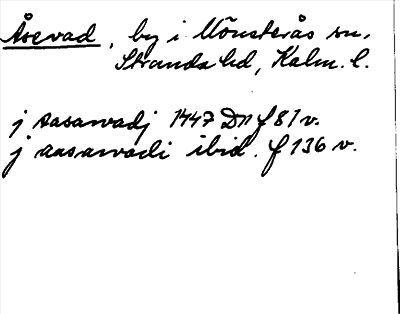 Åsevad, by i Mönsterås sn.
Stranda hd, Kalm. l.
j aasawadj 1447 Dn f 81 v.
j aasawadi ibid. f 136 v.